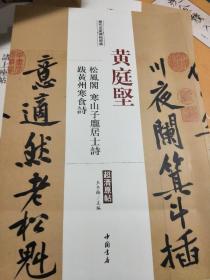 川夜闌箕斗插
黃庭堅
松風閣 寒山子龐居士詩
跋黃州寒食詩
超清原帖
主編
中國書店
意適然老松魁
諸上座帖